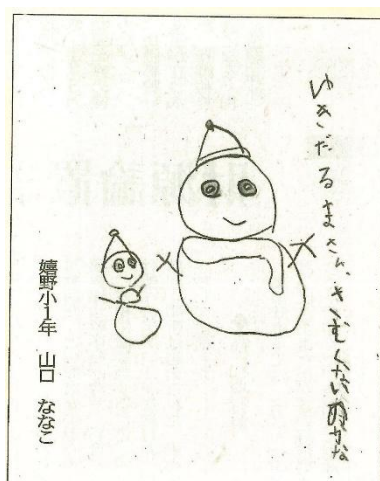 ゆきだるまさん、さむくないのかな
嬉野小1年 山口 ななこ